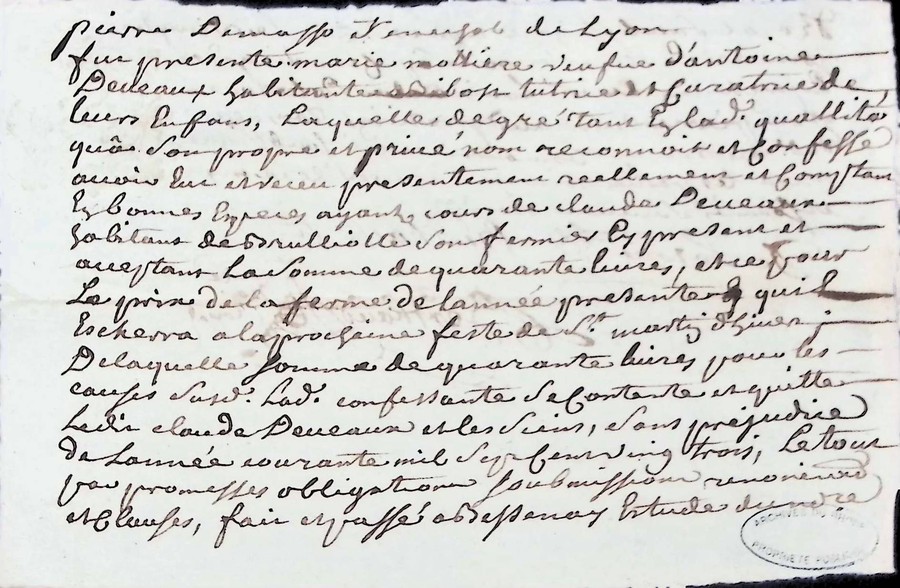 pierre Demasso Seneschal de Lyon
fut presente marie mottiere veufve d'antoine
Deveaux habitante tutrice et Curatrice de
leurs Enfans, Laquelle de gré tant En lad. quallité
quà Son propre et privé nom reconnoit et Confesse
avoir Eu et receu presentement reallement et Comptant
En bonnes Especes ayant cours de claude Deveaux
habitant de Brulliolle Son fermier Cy present et
acceptant La Somme de quarante livres, et ce pour
Le prix de la ferme de lannée presente quil
Escherra a la prochaine feste de St. martin dhiver ;
De laquelle Somme de quarante livres pour les
causes Susd. Lad. confessante Se Contente et quitte
Ledit claude Deveaux et les Siens, Sans préjudice
de Lannée courante mil Sept Cent vingt trois, Le tout
par promesses obligations Soubmissions renonciaons
et Clauses, fait et passé a Bessenay Estude du nore
ARCHIVES DU
PROPRIETE